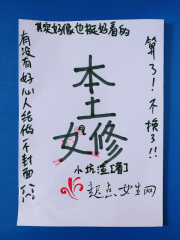 其实好像也挺好看的
有没有好心人给做个封面
算了！不换了！！
本土
女修
小坑渣【着】
起点女生网